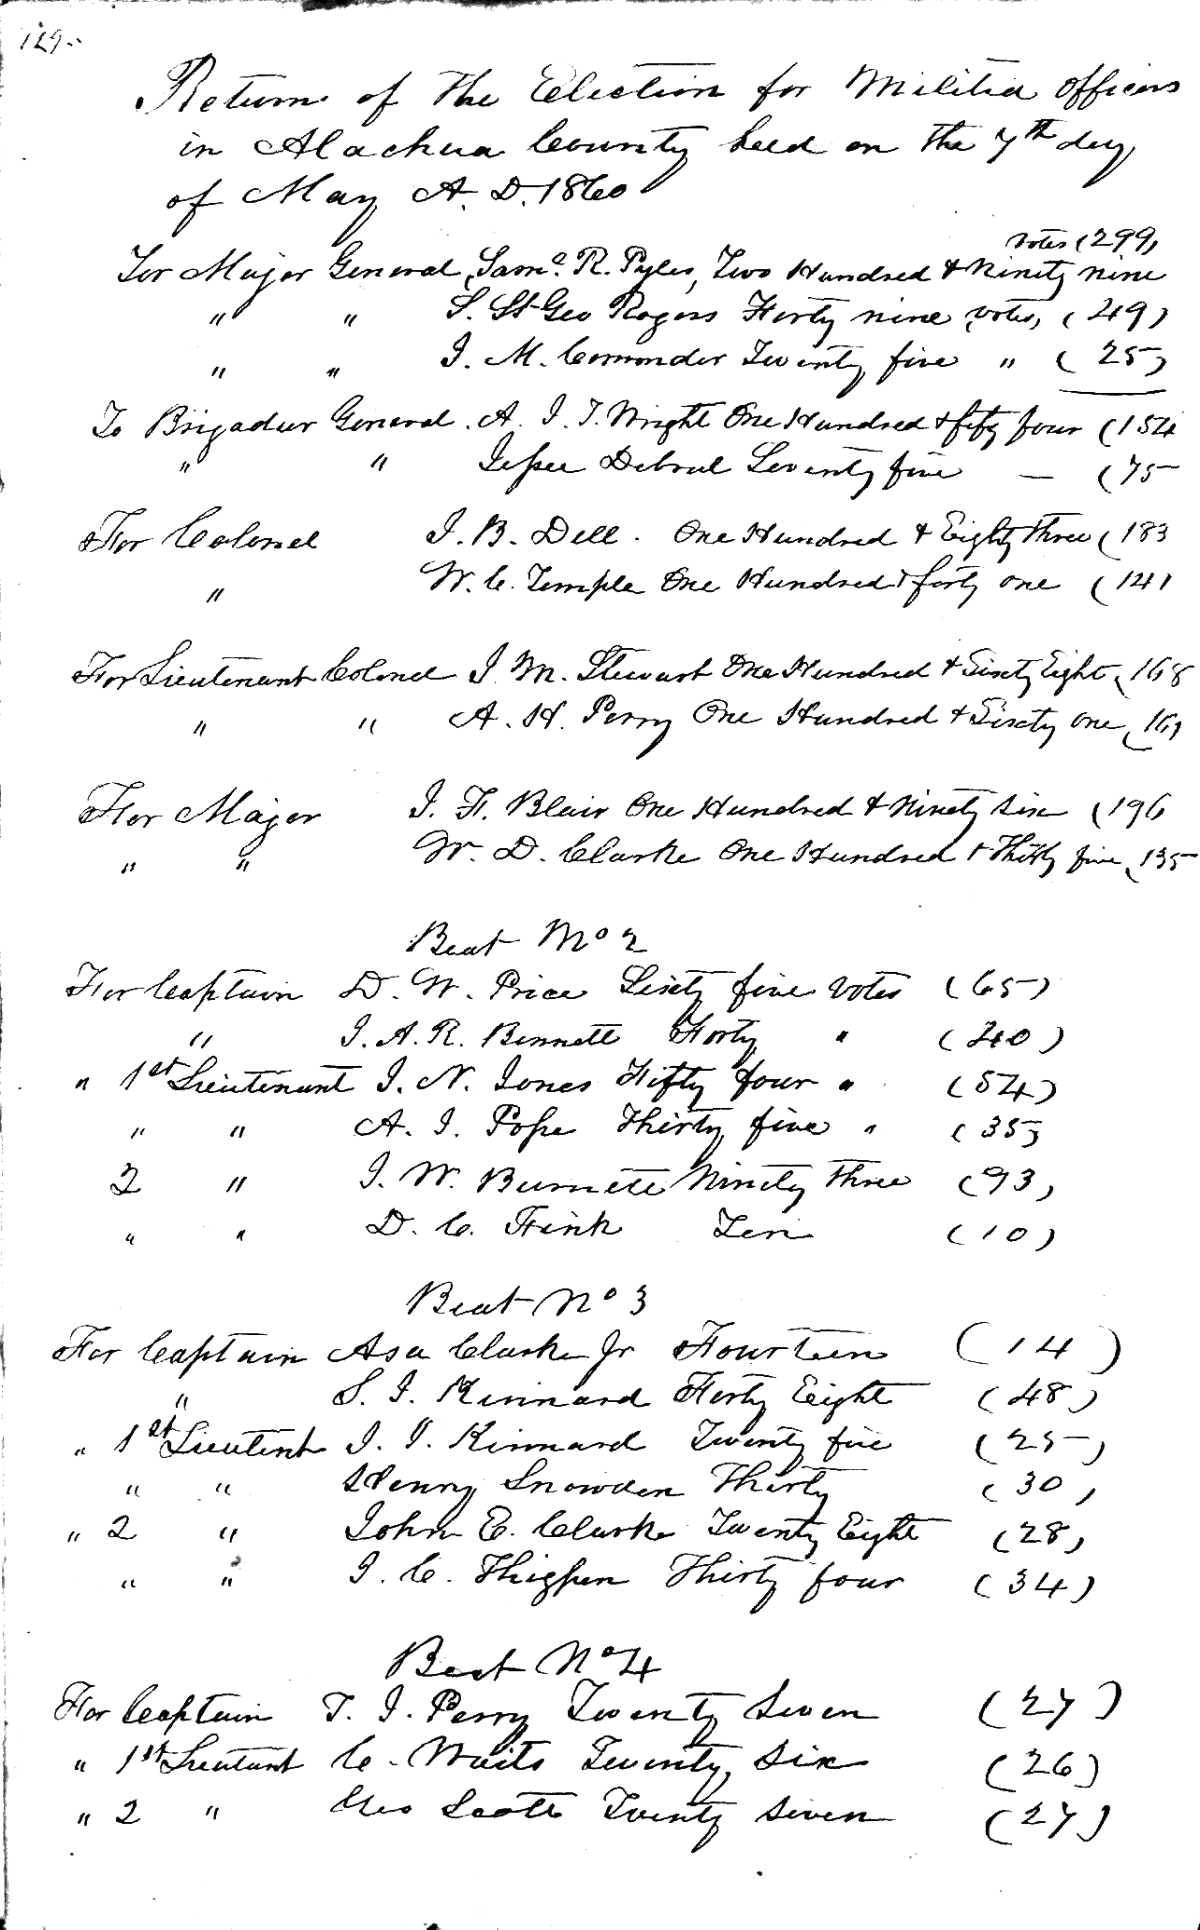 129.
Return of the Election for Militia Officers
in Alachua County held on the 7th day
of May A. D. 1860
votes (299)
For Major General, Saml. R. Pyles, Two Hundred & Ninety nine
" " S. St Geo Rogers Forty nine votes, (49)
" " J. M. Commander Twenty five " (25)
To Brigadier General. A. J. T. Wright One Hundred & fifty four (154
" " Jesse Debral Seventy five — (75
For Colonel J. B. Dell. One Hundred & Eighty three (183
" W. C. Temple One Hundred & forty one (141
For Lieutenant Colonel J. M. Stewart One Hundred & Sixty Eight (168
" " A. H. Perry One Hundred & Sixty one (161
For Major J. F. Blair One Hundred & Ninety six (196
" " W. D. Clarke One Hundred & Thirty five (135
Beat No 2
For Captain D. W. Price Sixty five votes (65)
" J. A. R. Bennett Forty " (40)
" 1st Lieutenant J. N. Jones Fifty four " (54)
" " A. J. Pope Thirty five " (35)
2 " J. W. Burnett Ninety three (93)
" " D. C. Fink Ten (10)
Beat No 3
For Captain Asa Clarke Jr Fourteen (14)
" S. J. Kinnard Forty Eight (48)
" 1st Lieutent J. J. Kinnard Twenty five (25)
" " Henry Snowden Thirty (30)
" 2 " John E. Clarke Twenty Eight (28)
" " J. C. Thigpen Thirty four (34)
Beat No 4
For Captain T. J. Perry Twenty Seven (27)
" 1st Lieutant C. Waits Twenty six (26)
" 2 " Geo Scott Twenty seven (27)